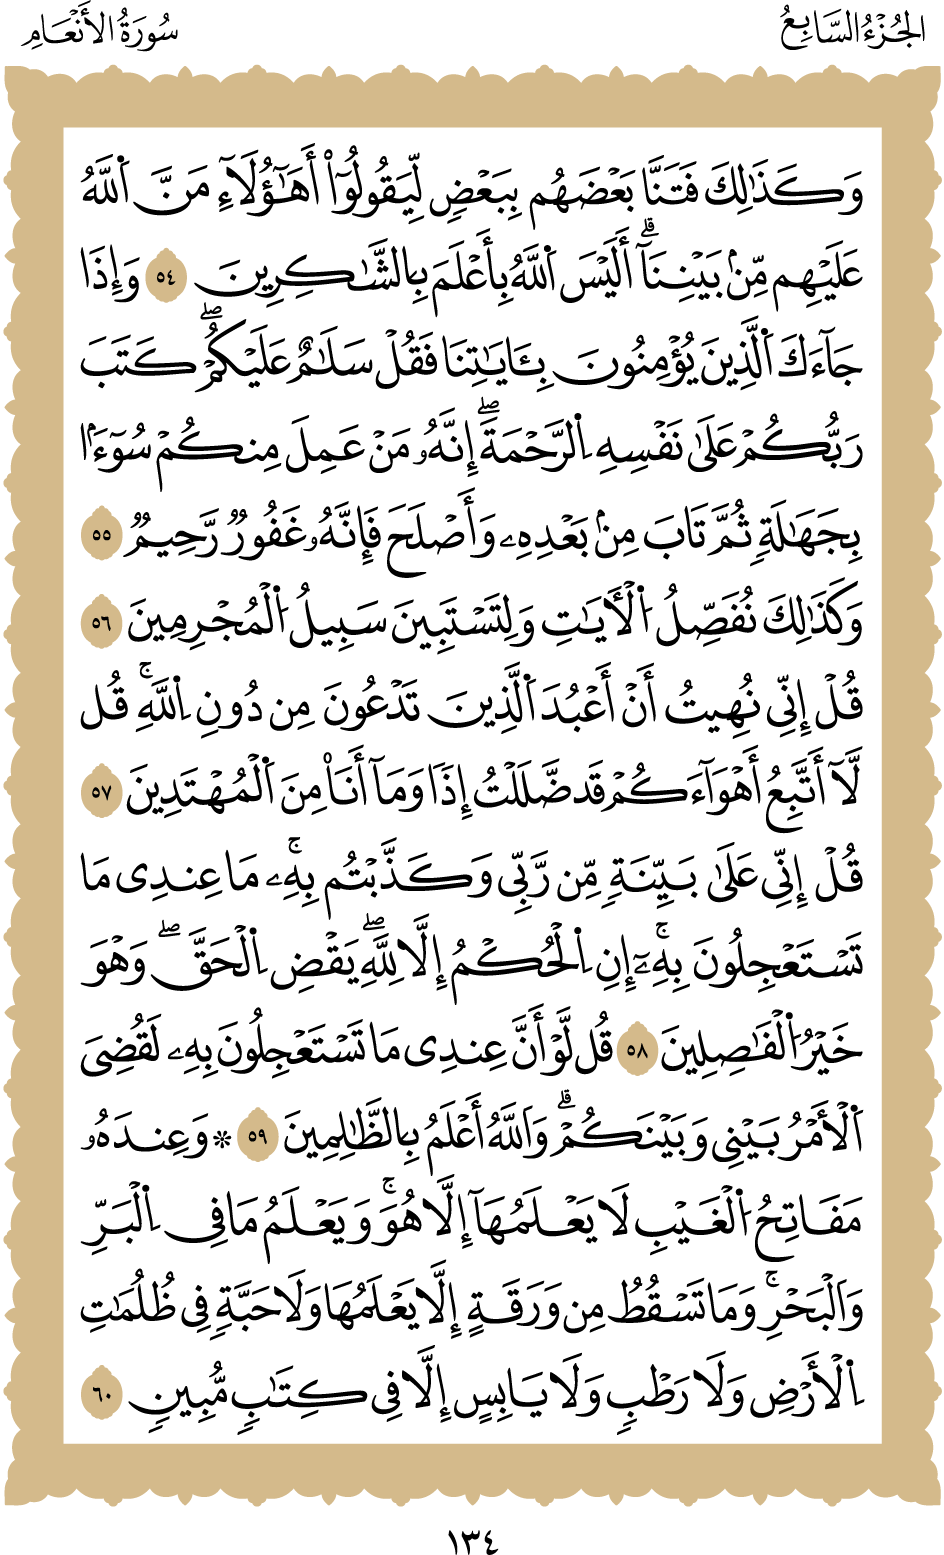 الجُزْءُ السَّابِعُ
سُورَةُ الأَنْعَامِ
وَكَذَٰلِكَ فَتَنَّا بَعْضَهُم بِبَعْضٍ لِّيَقُولُوٓاْ أَهَٰٓؤُلَآءِ مَنَّ اَ۬للَّهُ
عَلَيْهِم مِّنۢ بَيْنِنَآۗ أَلَيْسَ اَ۬للَّهُ بِأَعْلَمَ بِالشَّٰكِرِينَ ٥٤ وَإِذَا
جَآءَكَ اَ۬لَّذِينَ يُؤْمِنُونَ بِـَٔايَٰتِنَا فَقُلْ سَلَٰمٌ عَلَيْكُمْۖ كَتَبَ
رَبُّكُمْ عَلَىٰ نَفْسِهِ اِ۬لرَّحْمَةَۖ إِنَّهُۥ مَنْ عَمِلَ مِنكُمْ سُوٓءَۢا
بِجَهَٰلَةٖ ثُمَّ تَابَ مِنۢ بَعْدِهِۦ وَأَصْلَحَ فَإِنَّهُۥ غَفُورٞ رَّحِيمٞ ٥٥
وَكَذَٰلِكَ نُفَصِّلُ اُ۬لْأٓيَٰتِ وَلِتَسْتَبِينَ سَبِيلُ اُ۬لْمُجْرِمِينَ ٥٦
قُلْ إِنِّي نُهِيتُ أَنْ أَعْبُدَ اَ۬لَّذِينَ تَدْعُونَ مِن دُونِ اِ۬للَّهِۚ قُل
لَّآ أَتَّبِعُ أَهْوَآءَكُمْ قَد ضَّلَلْتُ إِذٗا وَمَآ أَنَا۠ مِنَ اَ۬لْمُهْتَدِينَ ٥٧
قُلْ إِنِّي عَلَىٰ بَيِّنَةٖ مِّن رَّبِّي وَكَذَّبْتُم بِهِۦۚ مَا عِندِي مَا
تَسْتَعْجِلُونَ بِهِۦٓۚ إِنِ اِ۬لْحُكْمُ إِلَّا لِلَّهِۖ يَقْضِ اِ۬لْحَقَّۖ وَهْوَ
خَيْرُ اُ۬لْفَٰصِلِينَ ٥٨ قُل لَّوْ أَنَّ عِندِي مَا تَسْتَعْجِلُونَ بِهِۦ لَقُضِيَ
اَ۬لْأَمْرُ بَيْنِي وَبَيْنَكُمْۗ وَاللَّهُ أَعْلَمُ بِالظَّٰلِمِينَ ٥٩ ۞ وَعِندَهُۥ
مَفَاتِحُ اُ۬لْغَيْبِ لَا يَعْلَمُهَآ إِلَّا هُوَۚ وَيَعْلَمُ مَا فِي اِ۬لْبَرِّ
وَالْبَحْرِۚ وَمَا تَسْقُطُ مِن وَرَقَةٍ إِلَّا يَعْلَمُهَا وَلَا حَبَّةٖ فِي ظُلُمَٰتِ
اِ۬لْأَرْضِ وَلَا رَطْبٖ وَلَا يَابِسٍ إِلَّا فِي كِتَٰبٖ مُّبِينٖ ٦٠
١٣٤